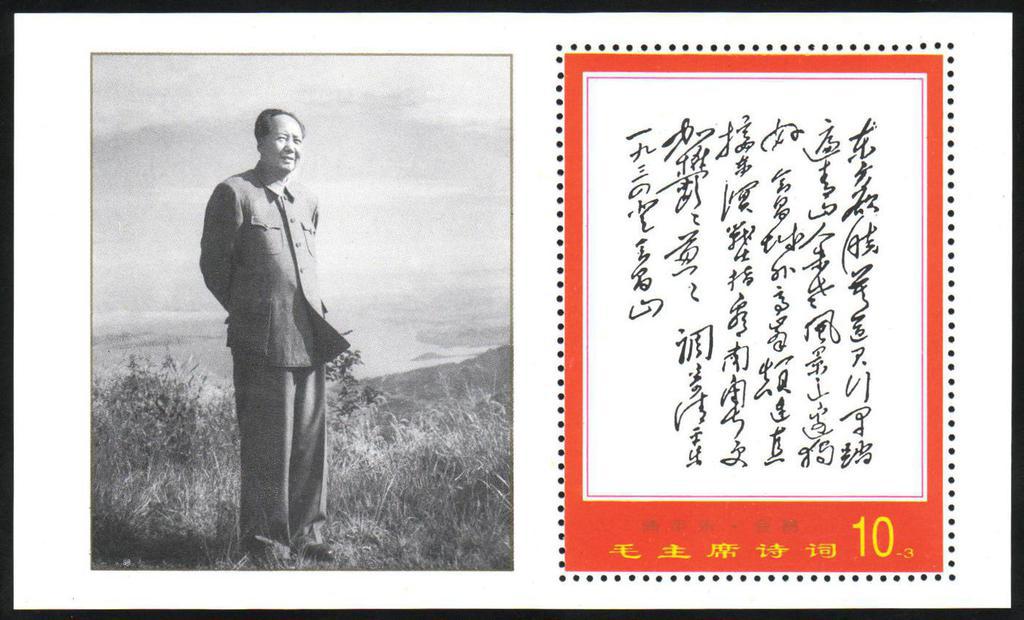 东方欲晓莫道君行早踏
遍青山人未老風景这边独
好 会昌城外高峯颠连直
接东溟战士指看南粤更
加鬱々葱々 調寄清平乐
一九三四登会昌山
清平乐·会昌
毛主席诗词 10-3